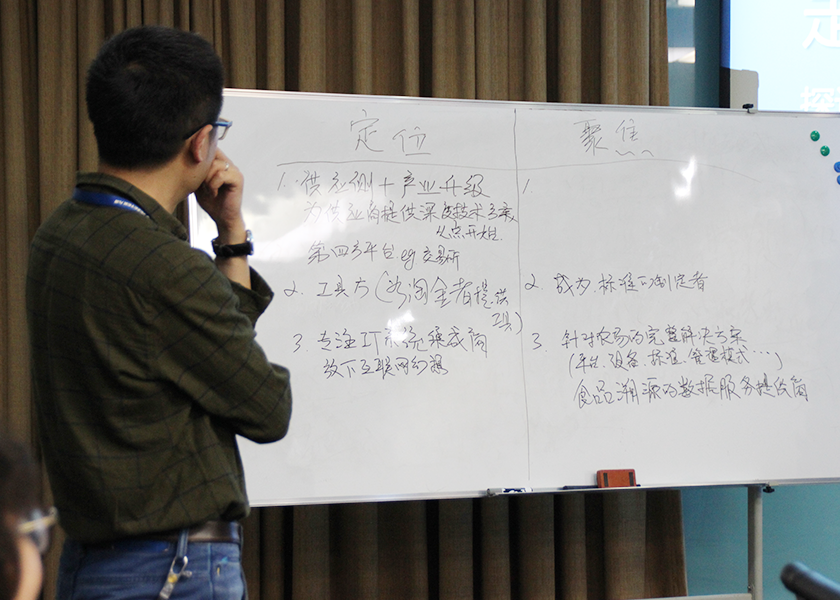 定位
聚焦
1. 供应侧+产业升级
为供应商提供深度技术方案
从点开始
第四方平台 eg 交易所
2. 工具方(为淘金者提供
工具)
3. 专注IT系统集成商
放下互联网幻想
1.
2. 成为 标准的制定者
3. 针对农易的完整解决方案
(平台、设备、标准、管理模式…)
食品溯源的数据服务提供商